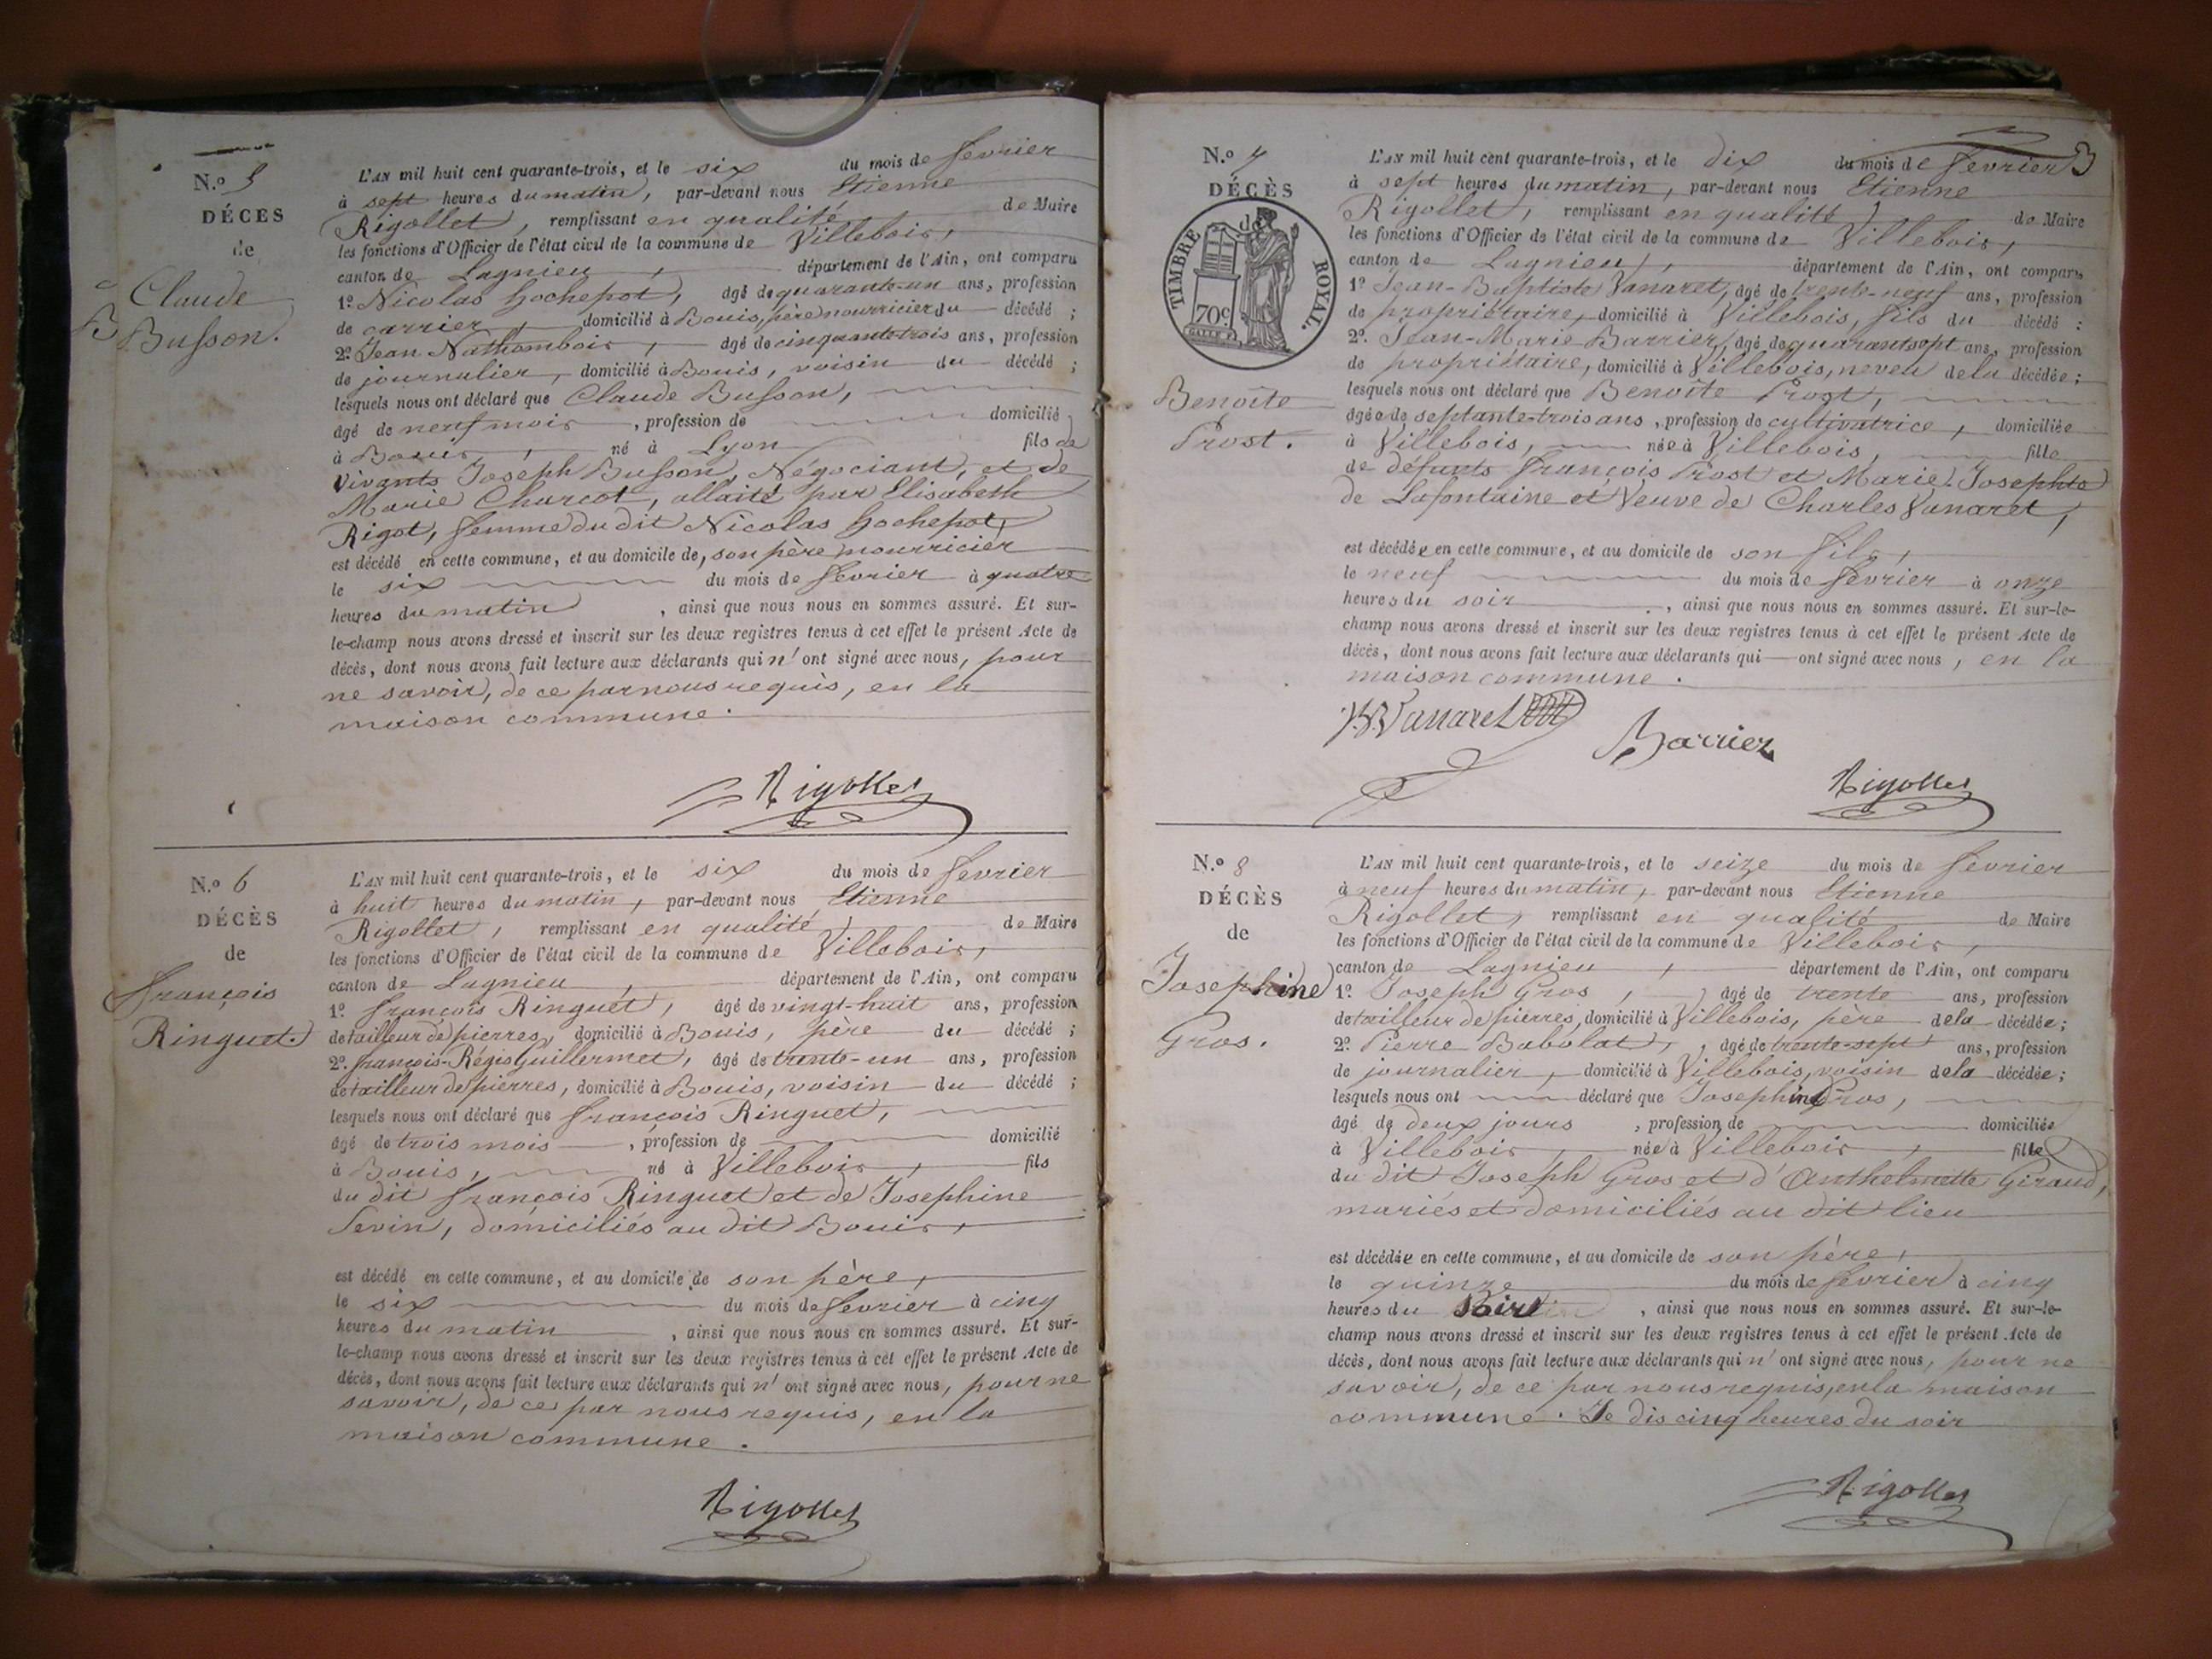 N.o 5
DÉCES
de
Claude
Busson.
L'AN mil huit cent quarante-trois, et le six du mois de février
à sept heures du matin, par-devant nous Etienne
Rigollet, remplissant en qualité de Maire
les fonctions d'Officier de l'état civil de la commune de Villebois,
canton de Lagnieu, département de l'Ain, ont comparu
1º Nicolas Hochepot, âgé de quarante-un ans, profession
de carrier, domicilié à Bouis, père nourricier du décédé ;
2º Jean Nathombois, âgé de cinquante-trois ans, profession
de journalier, domicilié à Bouis, voisin du décédé ;
lesquels nous ont déclaré que Claude Busson,
âgé de neuf mois, profession de domicilié
à Bouis, né à Lyon fils de
vivants Joseph Busson, Négociant, et de
Marie Charcot, allaité par Elisabeth
Rigot, femme du dit Nicolas Hochepot,
est décédé en cette commune, et au domicile de, son père nourricier
le six du mois de février à quatre
heures du matin, ainsi que nous nous en sommes assuré. Et sur-
le-champ nous avons dressé et inscrit sur les deux registres tenus à cet effet le présent Acte de
décès, dont nous avons fait lecture aux déclarants qui n'ont signé avec nous, pour
ne savoir, de ce par nous requis, en la
maison commune.
Rigollet
N.o 6
DÉCÈS
de
François
Ringuet.
L'AN mil huit cent quarante-trois, et le six du mois de février
à huit heures du matin, par-devant nous Etienne
Rigollet, remplissant en qualité de Maire
les fonctions d'Officier de l'état civil de la commune de Villebois,
canton de Lagnieu, département de l'Ain, ont comparu
1º François Ringuet, âgé de vingt-huit ans, profession
de tailleur de pierres, domicilié à Bouis, père du décédé ;
2º François-Régis Guillermet, âgé de trente-un ans, profession
de tailleur de pierres, domicilié à Bouis, voisin du décédé ;
lesquels nous ont déclaré que François Ringuet,
âgé de trois mois, profession de domicilié
à Bouis, né à Villebois, fils
du dit François Ringuet et de Josephine
Sevin, domiciliés au dit Bouis,
est décédé en cette commune, et au domicile de son père,
le six du mois de février à cinq
heures du matin, ainsi que nous nous en sommes assuré. Et sur-
le-champ nous avons dressé et inscrit sur les deux registres tenus à cet effet le présent Acte de
décès, dont nous avons fait lecture aux déclarants qui n'ont signé avec nous, pour ne
savoir, de ce par nous requis, en la
maison commune.
Rigollet
3
N.o 7
DÉCÈS
de
TIMBRE ROYAL.
70c
Benoîte
Prost.
L'AN mil huit cent quarante-trois, et le dix du mois de février
à sept heures du matin, par-devant nous Etienne
Rigollet, remplissant en qualité de Maire
les fonctions d'Officier de l'état civil de la commune de Villebois,
canton de Lagnieu, département de l'Ain, ont comparu
1º Jean-Baptiste Vanaret, âgé de trente-neuf ans, profession
de propriétaire, domicilié à Villebois, fils du décédé ;
2º. Jean-Marie Barrier, âgé de quarante sept ans, profession
de propriétaire, domicilié à Villebois, neveu de la décédée ;
lesquels nous ont déclaré que Benoîte Prost,
âgée de septante-trois ans, profession de cultivatrice, domiciliée
à Villebois, née à Villebois, fille
de défunts François Prost et Marie Josephte
de Lafontaine et Veuve de Charles Vanaret,
est décédée en cette commune, et au domicile de son fils,
le neuf du mois de février à onze
heures du soir, ainsi que nous nous en sommes assuré. Et sur-le-
champ nous avons dressé et inscrit sur les deux registres tenus à cet effet le présent Acte de
décès, dont nous avons fait lecture aux déclarants qui ont signé avec nous, en la
maison commune.
J.B. Vanaret
Barrier
Rigollet
N.o 8
DÉCÈS
de
Josephine
Gros.
L'AN mil huit cent quarante-trois, et le seize du mois de février
à neuf heures du matin, par-devant nous Etienne
Rigollet, remplissant en qualité de Maire
les fonctions d'Officier de l'état civil de la commune de Villebois,
canton de Lagnieu, département de l'Ain, ont comparu
1º. Joseph Gros, âgé de trente ans, profession
de tailleur de pierres, domicilié à Villebois, père de la décédée ;
2º. Pierre Babolat, âgé de trente-sept ans, profession
de journalier, domicilié à Villebois, voisin de la décédée ;
lesquels nous ont déclaré que Josephine Gros,
âgé de deux jours, profession de domiciliée
à Villebois, née à Villebois, fille
du dit Joseph Gros et d'Anthelmette Giraud,
mariés et domiciliés au dit lieu
est décédée en cette commune, et au domicile de son père,
le quinze du mois de février à cinq
heures du soir, ainsi que nous nous en sommes assuré. Et sur-le-
champ nous avons dressé et inscrit sur les deux registres tenus à cet effet le présent Acte de
décès, dont nous avons fait lecture aux déclarants qui n'ont signé avec nous, pour ne
savoir, de ce par nous requis, en la maison
commune. Je dis cinq heures du soir
Rigollet